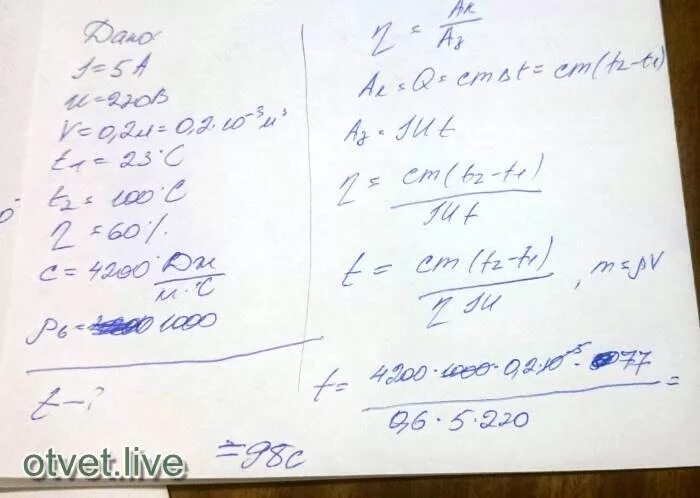 Дано
J = 5 A
u = 220В
V = 0,2л = 0,2·10⁻³ м³
t₁ = 23°C
t₂ = 100°C
η = 60%
c = 4200 Дж/м·°C
ρв = 1000
t - ?
η = Aп/Aз
Aп = Q = cmΔt = cm(t₂-t₁)
Aз = JUt
η = cm(t₂-t₁)/JUt
t = cm(t₂-t₁)/ηJU , m = ρV
t = 4200·1000·0,2·10⁻³·77/0,6·5·220 =
= 98c
otvet.live